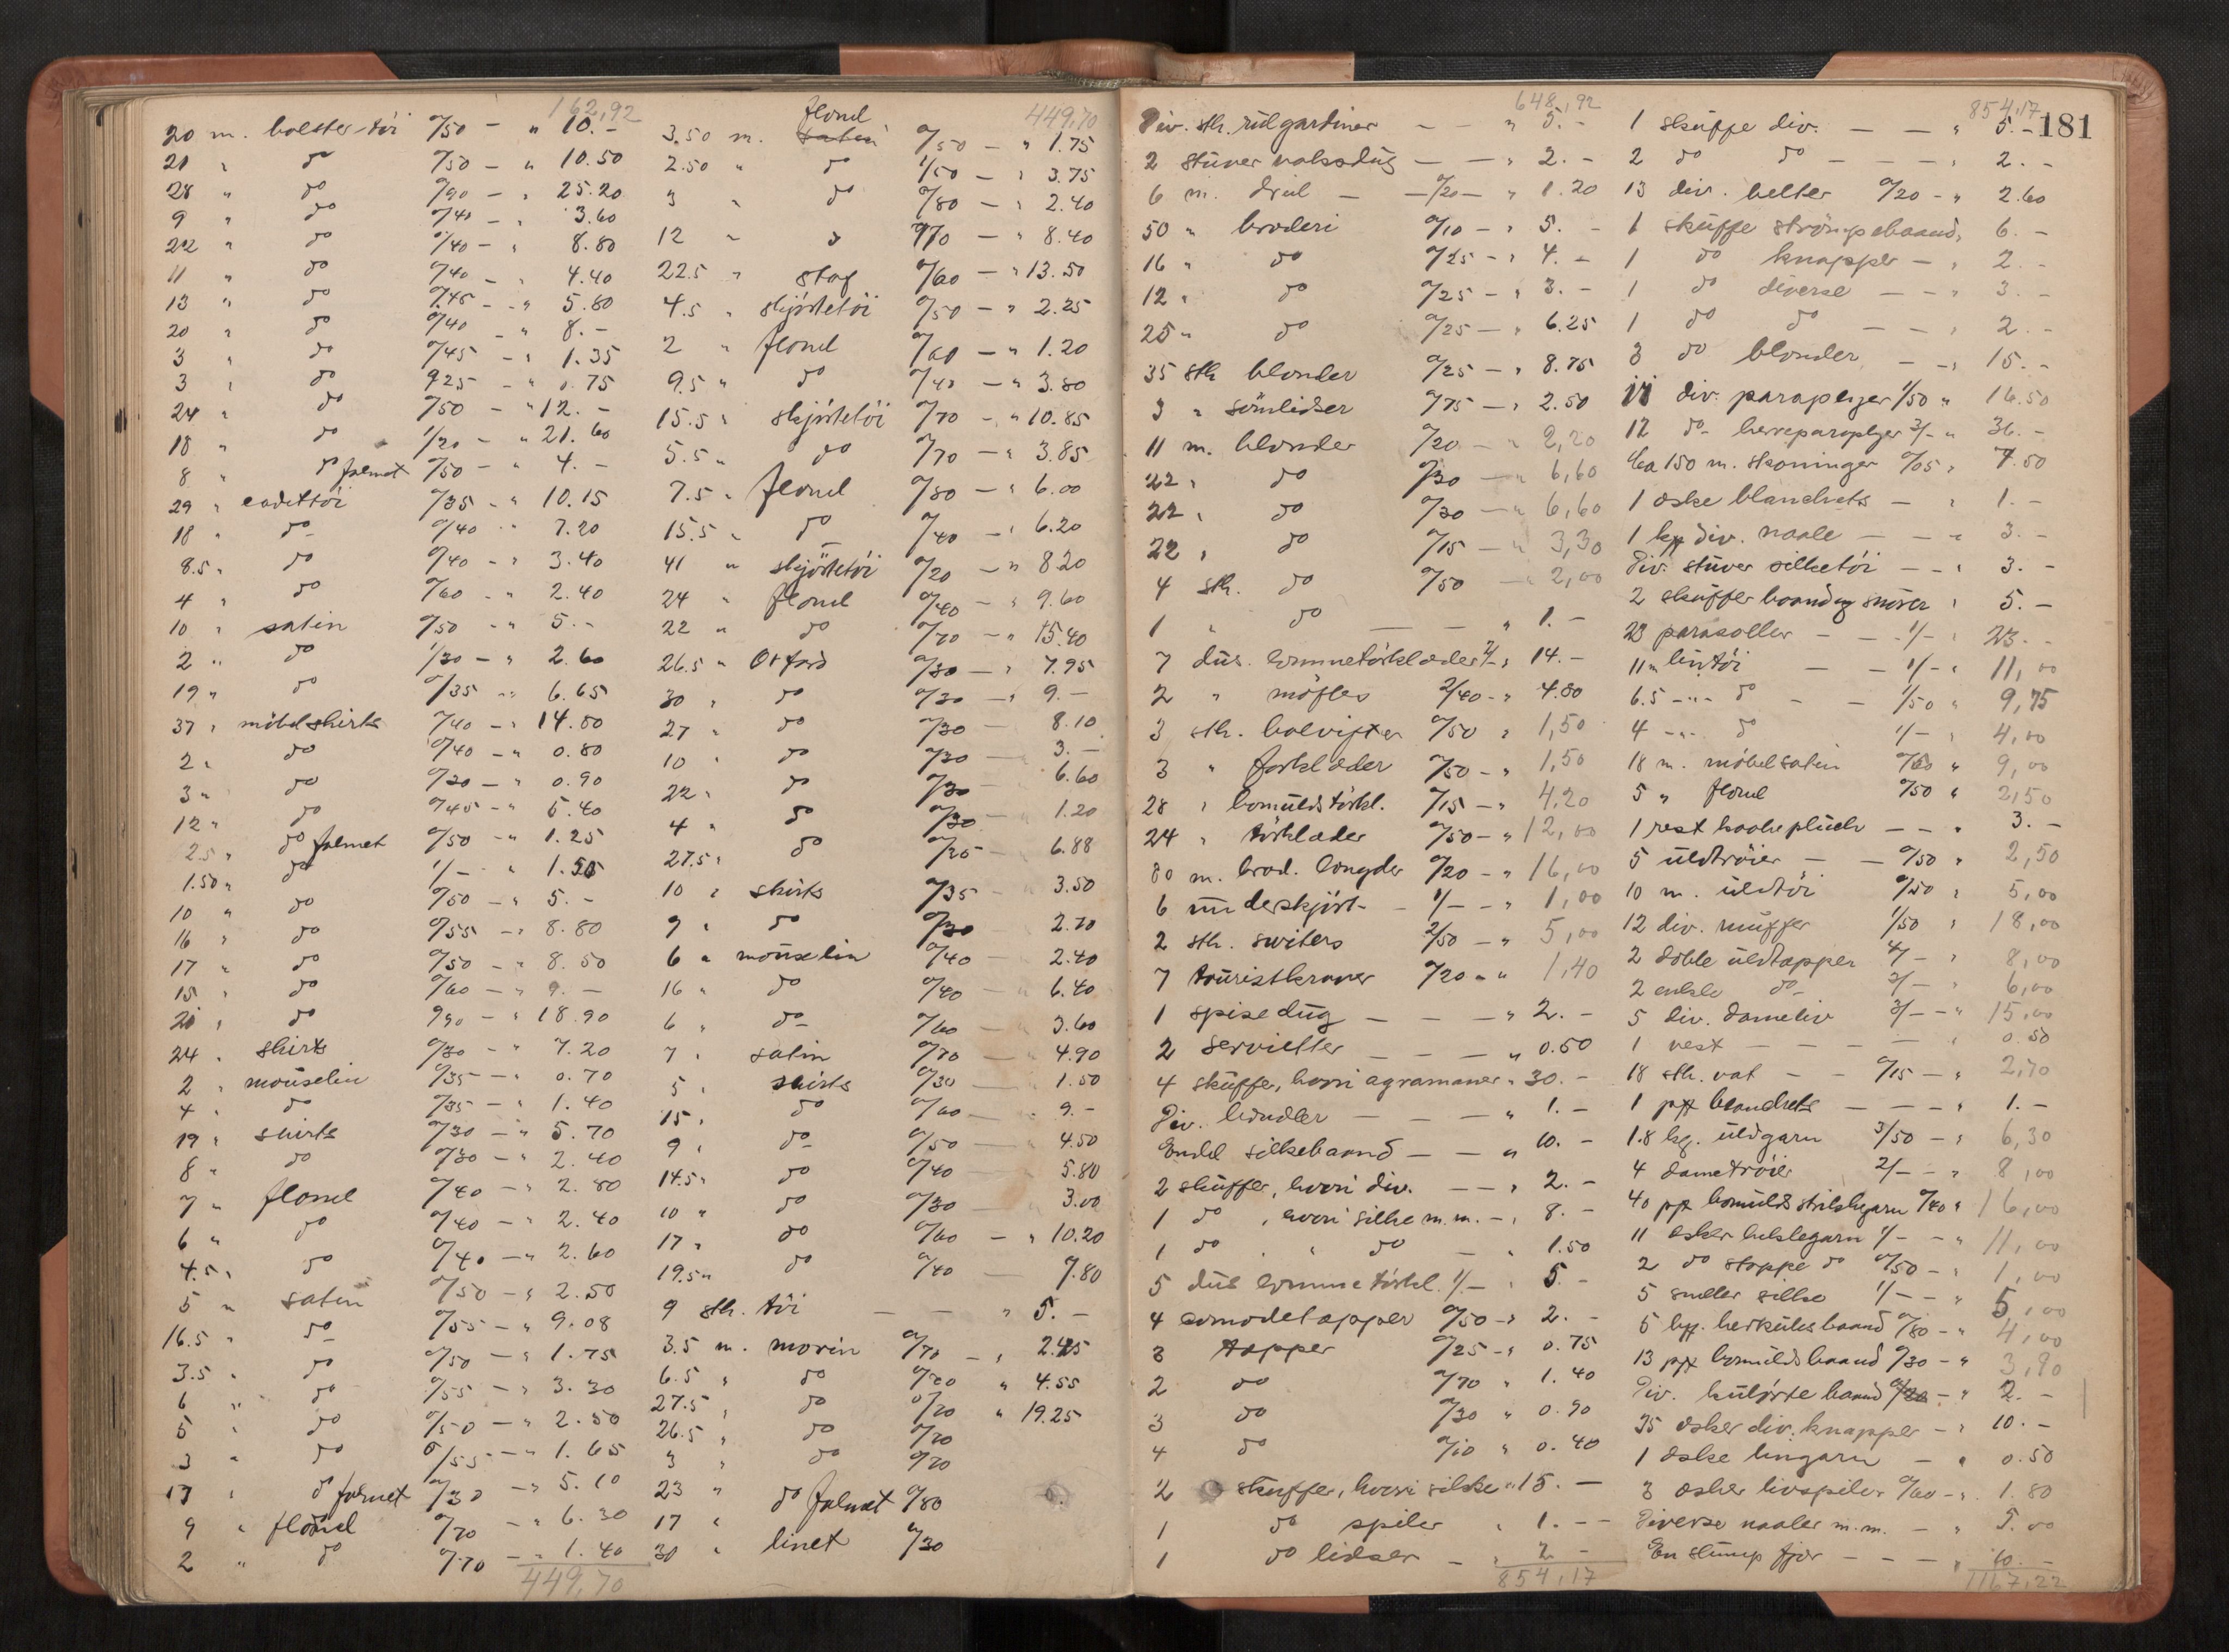 162,92
20 m. bolstertöi 0/50 - " 10.-
21 " do 0/50 - " 10.50
28 " do 0/90 - " 25.20
9 " do 0/40 - " 3.60
22 " do 0/40 - " 8.80
11 " do 0/40 - " 4.40
13 " do 0/45 - " 5.80
20 " do 0/40 " 8.-
3 " do 0/45 - " 1.35
3 " do 0/25 - " 0.75
24 " do 0/50 - " 12.-
18 " do 1/20 - " 21.60
8 " do falmet 0/50 - " 4.-
29 " cadettöi 0/35 - " 10.15
18 " do 0/40 " 7.20
8.5 " do 0/40 - " 3.40
4 " do 0/60 - " 2.40
10 " satin 0/50 - " 5.-
2 " do 1/30 - " 2.60
19 " do 0/35 - " 6.65
37 " möbelshirts 0/40 - " 14.80
2 " do 0/40 - " 0.80
3 " do 0/30 - " 0.90
12 " do 0/45 - " 5.40
2.5 " do falmet 0/50 - " 1.25
1.50 " do 1/- " 1.50
10 " do 0/50 - " 5.-
16 " do 0/55 - " 8.80
17 " do 0/50 - " 8.50
15 " do 0/60 - " 9.-
21 " do 0/90 - " 18.90
24 " shirts 0/30 - " 7.20
2 " mouselin 0/35 - " 0.70
4 " do 0/35 - " 1.40
19 " shirts 0/30 - " 5.70
8 " do 0/30 - " 2.40
7 " flonel 0/40 - " 2.80
6 " do 0/40 - " 2.40
4.5 " do 0/40 - " 2.60
5 " satin 0/50 - " 2.50
16.5 " do 0/55 - " 9.08
3.5 " do 0/50 - " 1.75
6 " do 0/55 - " 3.30
5 " do 0/50 - " 2.50
3 " do 0/55 - " 1.65
17 " do falmet 0/30 - " 5.10
9 " flonel 0/70 - " 6.30
2 " do 0/70 - " 1.40
449,70
449,70
flonel
3.50 m. satin 0/50 - " 1.75
2.50 " do 1/50 - " 3.75
3 " do 0/80 - " 2.40
12 " do 0/70 - " 8.40
22.5 " stof 0/60 - " 13.50
4.5 " skjörtetöi 0/50 - " 2.25
2 " flonel 0/60 - " 1.20
9.5 " do 0/40 - " 3.80
15.5 " skjörtetöi 0/70 - " 10.85
5.5 " do 0/70 - " 3.85
7.5 " flonel 0/80 - " 6.00
15.5 " do 0/40 - " 6.20
41 " skjörtetöi 0/20 - " 8.20
24 " flonel 0/40 - " 9.60
22 " do 0/70 - " 15.40
26.5 " Oxford 0/30 - " 7.95
30 " do 0/30 - " 9.-
27 " do 0/30 - 8.10
10 " do 0/30 - 3.-
22 " do 0/30 - 6.60
4 " do 0/30 - 1.20
27.5 " do 0/25 - 6.88
10 " shirts 0/35 - " 3.50
9 " do 0/30 - " 2.70
6 " mouselin 0/40 - " 2.40
16 " do 0/40 - " 6.40
6 " do 0/60 - " 3.60
7 " satin 0/70 - " 4.90
5 " shirts 0/30 - 1.50
15 " do 0/60 - " 9.-
9 " do 0/50 - 4.50
14.5 " do 0/40 - 5.80
10 " do 0/30 - 3.00
17 " do 0/60 - " 10.20
19.5 " do 0/40 - 7.80
9 stk. töi - - " 5.-
3.5 m. morin 0/70 - " 2.45
6.5 " do 0/70 " 4.55
27.5 " do 0/70 " 19.25
26.5 " do 0/70
3 " do 0/70
23 " do falmet 0/80
17 "
30 " linet 0/30
181
648,92
Div. stk. rulgardiner - - " 5.-
2 stuver voksdug - - " 2.-
6 m. dreil - - 0/20 - " 1.20
50 " broderi 0/10 - " 5.-
16 " do 0/25 - " 4.-
12 " do 0/25 - " 3.-
25 " do 0/25 - " 6.25
35 stk blonder 0/25 - " 8.75
3 " sömlidser 0/75 - " 2.50
11 m. blonder 0/20 - " 2,20
22 " do 0/30 - " 6,60
22 " do 0/30 - " 6,60
22 " do 0/15 - " 3,30
4 stk. do 0/50 - " 2,00
1 " do - - " 1.-
7 dus. lommetörklæder 2/- " 14.-
2 " 2/40 - " 4.80
3 stk. 0/50 " 1,50
3 " forklæder 0/50 - " 1,50
28 " bomuldstörkl. 0/15 - " 4,20
24 " törklæder 0/50 - " 12,00
80 m. brod. longder 0/20 - " 16,00
6 underskjört - 1/- - " 1,00
2 stk. switers 2/50 - " 5,00
7 touristkraver 0/20 - " 1,40
1 spisedug - - - " 2.-
2 servietter - - - " 0.50
4 skuffer, hvori agramaner " 30.-
Div. - - - " 1.-
Endel silkebaand - - " 10.-
2 skuffer, hvori div. - - " 2.-
1 do, hvori silke m.m. - " 8.-
1 do " " do - " 1.50
5 dus lommetörkl. 1/- " 5.-
4 comodetæpper 0/50 - " 2.-
3 tæpper 0/25 - " 0.75
2 do 0/70 " 1.40
3 do 0/30 " 0.90
4 do 0/10 " 0.40
2 skuffer, hvori silke " 15.-
1 do spiler " 1.-
1 do lidser - " 2.-
854,17
854,17
1 skuffe div. - - " 5.-
2 do do - - - " 2.-
13 div. belter 0/20 - " 2.60
1 skuffe strömpebaand " 6.-
1 do knapper - " 2.-
1 do diverse - - " 3.-
1 do do - - " 2.-
3 do blonder - - " 15.-
11 div. paraplyer 1/50 " 16.50
12 do herreparaplyer 3/- " 36.-
Ca 150 m. skoninger 0/05 " 7.50
1 æske blanchets - " 1.-
1 kp div. naale - - " 3.-
Div. stuver silketöi - - " 3.-
2 skuffer baand og snörer " 5.-
23 parasoller - - 1/- " 23.-
11 m lintöi - - 1/- " 11,00
6.5 - " - do - - 1/50 " 9,75
4 - " - do 1/- " 4,00
18 m. möbelsatin 0/50 " 9,00
5 " flonel 0/50 " 2,50
1 rest kaabeplüch - - " 3.-
5 uldtröier - - 0/50 " 2,50
10 m. uldtöi 0/50 " 5,00
12 div. muffer 1/50 " 18,00
2 doble uldtæpper 4/- " 8,00
2 enkle do 3/- " 6,00
5 div. dameliv 3/- - " 15,00
1 vest - - - - " 0.50
18 stk. vat - - 0/15 - " 2,70
1 pk blanchets - - - " 1.-
1.8 kg. uldgarn 3/50 - " 6,30
4 dametröier 2/- - " 8,00
40 pk bomuldsstrikkegarn 0/40 " 16,00
11 æsker heklegarn 1/- - " 11,00
2 do stoppe do 0/50 - " 1,00
5 sneller silke 1/- - " 5,00
5 kp. herkulesbaand 0/80 - " 4,00
13 pk bomuldsbaand 0/30 - " 3,90
Div. kulörte baand 0/20 - " 2.-
35 æsker div. knapper - " 10.-
1 æske lingarn - " 0.50
3 æsker livspiler 0/60 - " 1.80
Diverse naaler m.m. - " 5.00
En slump fjær - - - " 10.-
1167,22